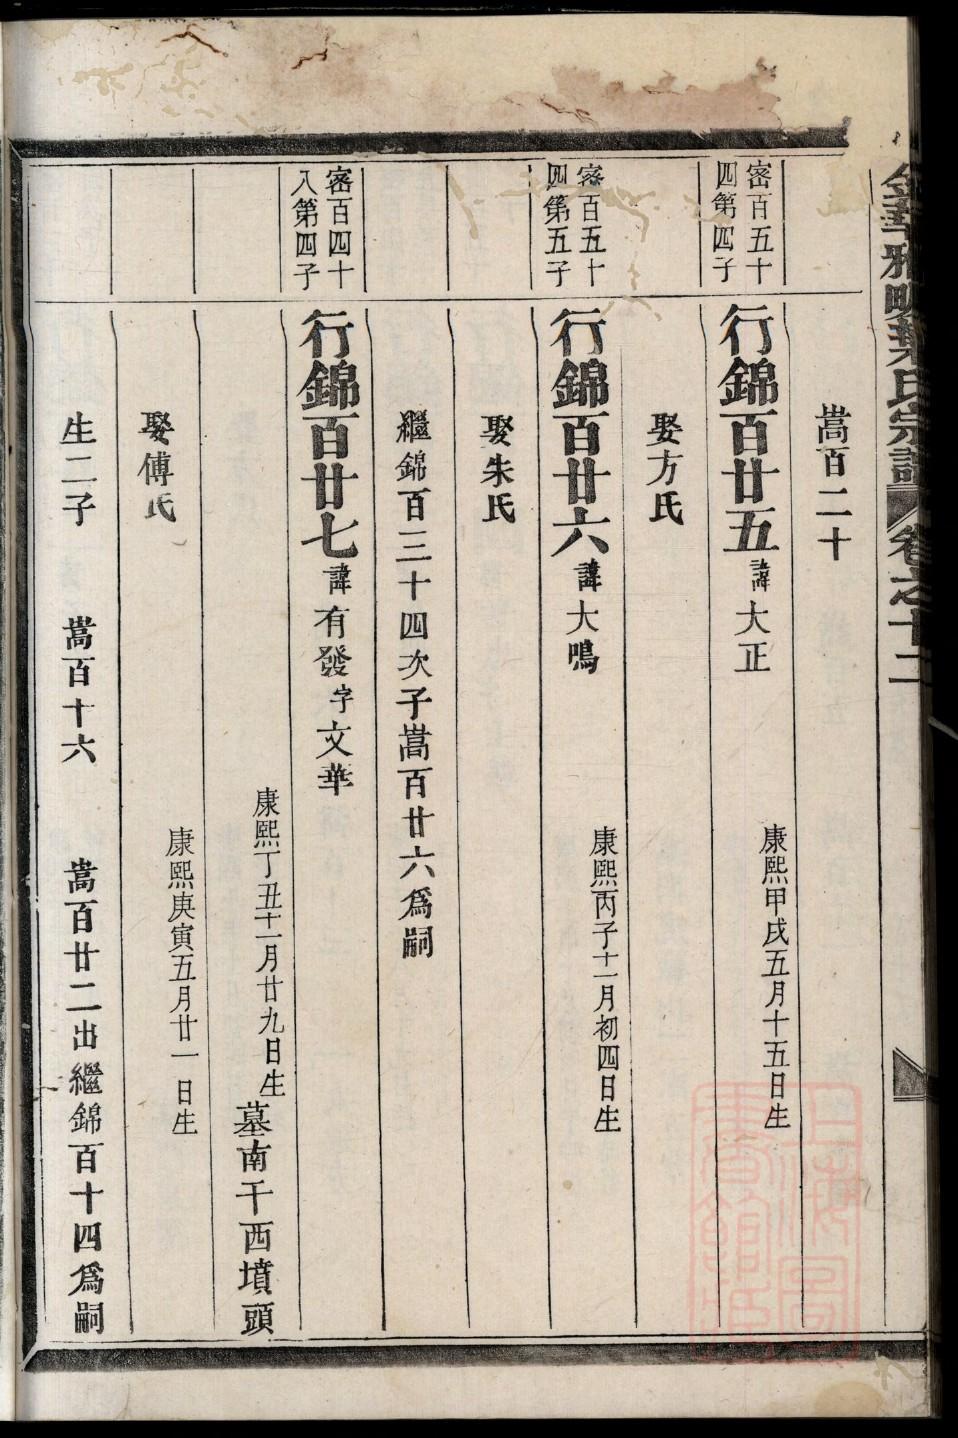 金華雅畈葉氏宗譜 卷之十二
嵩百二十
密百五十
四第四子
行錦百廿五諱大正
康熙甲戌五月十五日生
娶方氏
密百五十
四第五子
行錦百廿六諱大鳴
康熙丙子十一月初四日生
娶朱氏
繼錦百三十四次子嵩百廿六爲嗣
密百四十
入第四子
行錦百廿七諱有發字文華
康熙丁丑十一月廿九日生
墓南干西墳頭
娶傅氏
康熙庚寅五月廿一日生
生二子 嵩百十六 嵩百廿二出繼錦百十四爲嗣